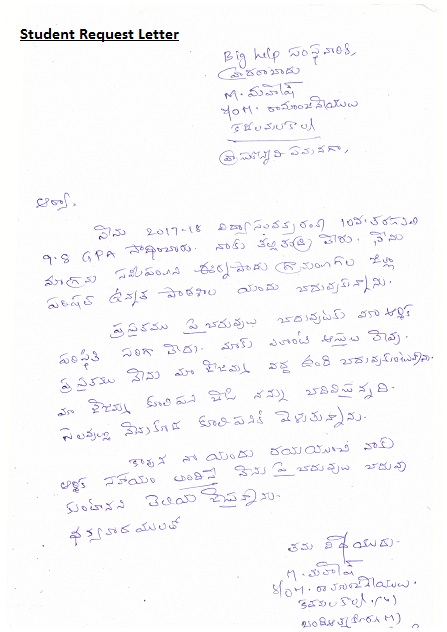 Student Request Letter
Big help సంస్థ వారికి,
హైదరాబాదు
M. మహేష్
S/o M. రామాంజనేయులు
వ్రాయునది ఏమనగా,
ఆర్యా,
నేను 2017-18 విద్యా సంవత్సరంలో 10వ తరగతిలో
9.8 GPA సాధించాను. నాకు తల్లితండ్రి లేరు. నేను
మా గ్రామ సమీపంలోని గ్రామంలోని జిల్లా
పరిషత్ ఉన్నత పాఠశాల యందు చదువుకున్నాను.
ప్రస్తుతము పై చదువులు చదువుటకు మా ఆర్థిక
పరిస్థితి సరిగా లేదు. మాకు ఎలాంటి ఆస్తులు లేవు.
ప్రస్తుతము నేను మా వద్ద ఉండి చదువుకుంటున్నాను.
మా కూలి పని చేసి నన్ను చదివిస్తున్నది.
సెలవుల్లో నేను కూడ కూలి పనికి వెళుతున్నాను.
కావున నా యందు దయయుంచి నాకు
ఆర్థిక సహాయం అందిస్తే నేను పై చదువులు చదువు
కుంటానని తెలియజేస్తున్నాను.
ధన్యవాదములతో
తమ విధేయుడు.
M. మహేష్
S/o M. రామాంజనేయులు.